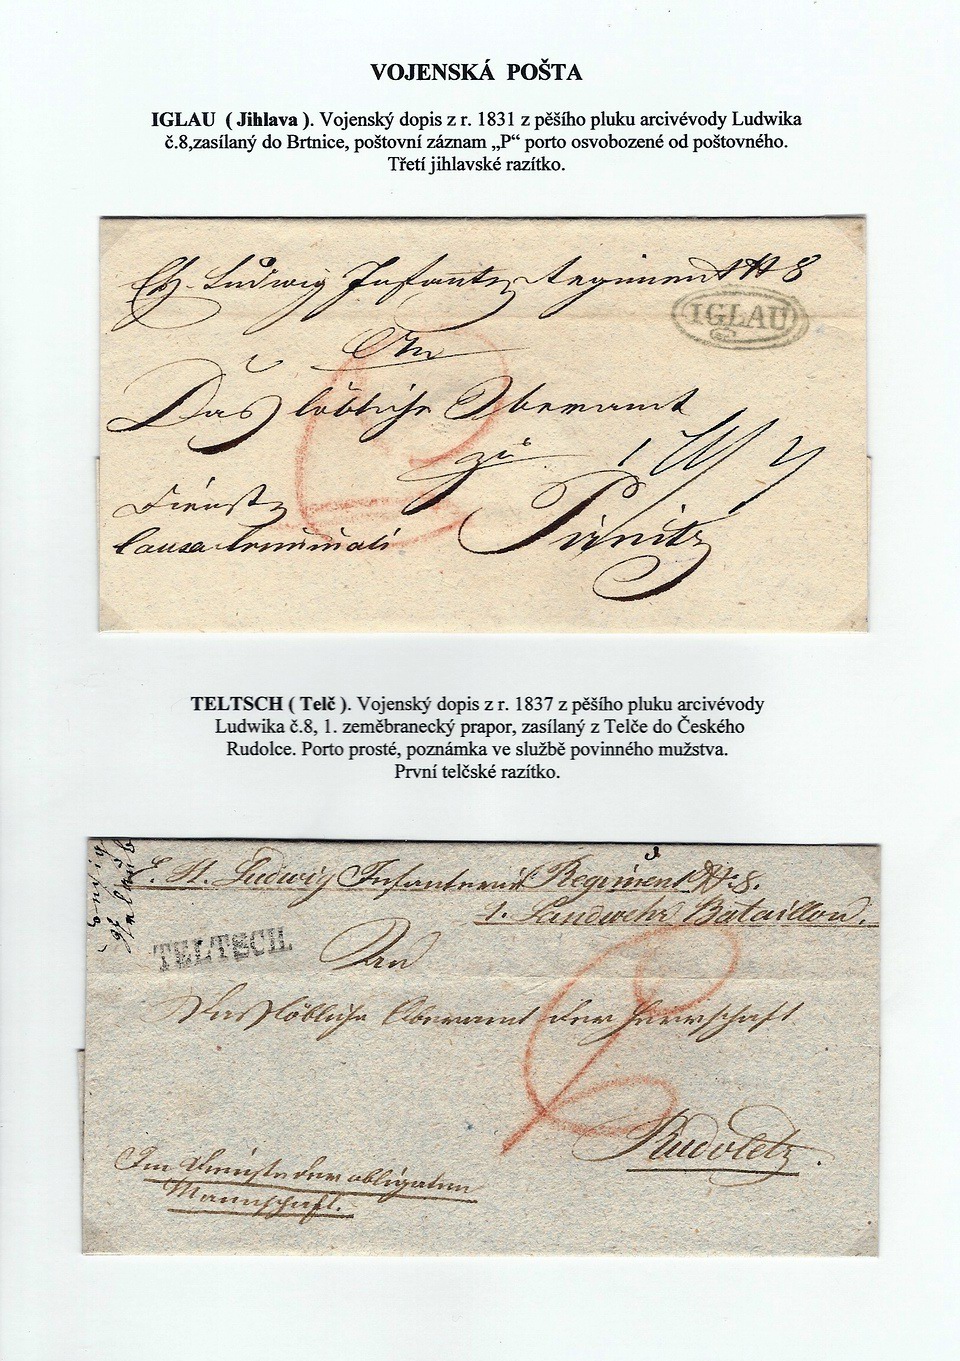 VOJENSKÁ POŠTA
IGLAU ( Jihlava ). Vojenský dopis z r. 1831 z pěšího pluku arcivévody Ludwika
č.8,zasílaný do Brtnice, poštovní záznam „P“ porto osvobozené od poštovného.
Třetí jihlavské razítko.
Ludwig Infanterie Regiment № 8
IGLAU
An
Das löbliche Oberamt
zu
Pirnitz
Dienst
Causa Criminali
TELTSCH ( Telč ). Vojenský dopis z r. 1837 z pěšího pluku arcivévody
Ludwika č.8, 1. zeměbranecký prapor, zasílaný z Telče do Českého
Rudolce. Porto prosté, poznámka ve službě povinného mužstva.
První telčské razítko.
E. H. Ludwig Infanterie Regiment № 8.
1. Landwehr Bataillon.
TELTSCH
An
Das löbliche Oberamt der Herrschaft
Rudoletz.
Im Dienste der obligaten
Mannschaft.